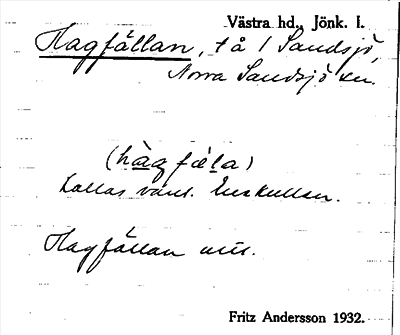 Västra hd., Jönk. l.
Hagfällan, t å 1 Sandsjö,
Norra Sandsjö sn.
(hàgfæ̀la)
kallas vanl. Enekullen.
Hagfällan
Fritz Andersson 1932.